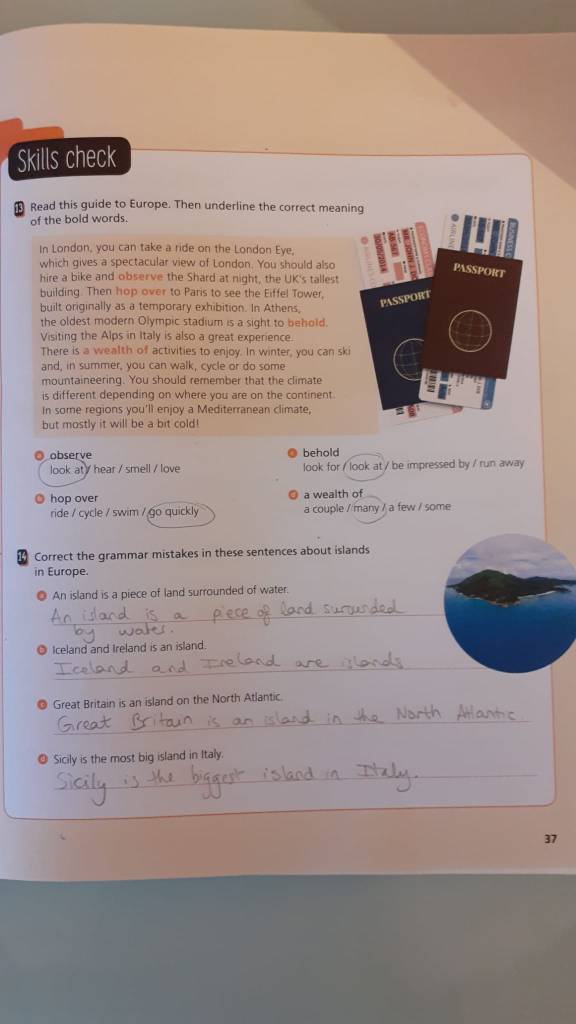 Skills check
13 Read this guide to Europe. Then underline the correct meaning
of the bold words.
In London, you can take a ride on the London Eye,
which gives a spectacular view of London. You should also
hire a bike and observe the Shard at night, the UK's tallest
building. Then hop over to Paris to see the Eiffel Tower,
built originally as a temporary exhibition. In Athens,
the oldest modern Olympic stadium is a sight to behold.
Visiting the Alps in Italy is also a great experience.
There is a wealth of activities to enjoy. In winter, you can ski
and, in summer, you can walk, cycle or do some
mountaineering. You should remember that the climate
is different depending on where you are on the continent.
In some regions you'll enjoy a Mediterranean climate,
but mostly it will be a bit cold!
PASSPORT
PASSPORT
a observe
look at / hear / smell / love
b hop over
ride / cycle / swim / go quickly
c behold
look for / look at / be impressed by / run away
d a wealth of
a couple / many / a few / some
14 Correct the grammar mistakes in these sentences about islands
in Europe.
a An island is a piece of land surrounded of water.
An island is a piece of land surounded
by water.
b Iceland and Ireland is an island.
Iceland and Ireland are islands
c Great Britain is an island on the North Atlantic.
Great Britain is an island in the North Atlantic
d Sicily is the most big island in Italy.
Sicily is the biggest island in Italy.
37